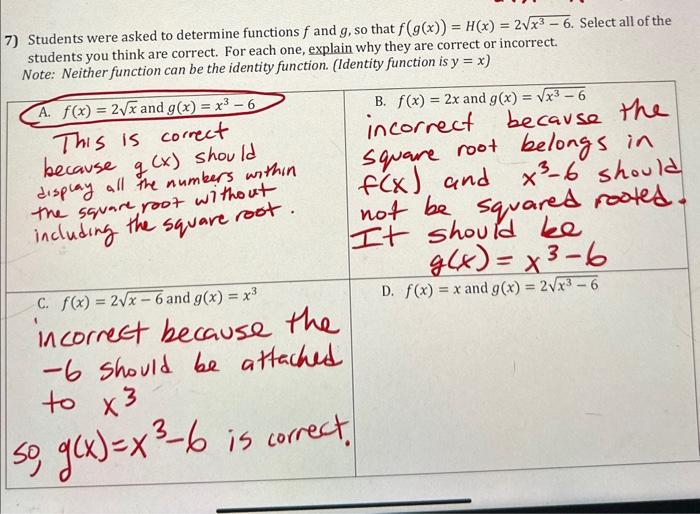 7) Students were asked to determine functions f and g, so that f(g(x)) = H(x) = 2√(x³ − 6). Select all of the
students you think are correct. For each one, explain why they are correct or incorrect.
Note: Neither function can be the identity function. (Identity function is y = x)
A. f(x) = 2√x and g(x) = x³ − 6
This is correct
because g(x) should
display all the numbers within
the square root without
including the square root.
B. f(x) = 2x and g(x) = √(x³ − 6)
incorrect because the
square root belongs in
f(x) and x³-6 should
not be squared rooted.
It should be
g(x) = x³-6
C. f(x) = 2√(x − 6) and g(x) = x³
incorrect because the
-6 should be attached
to x³
so, g(x)=x³-6 is correct.
D. f(x) = x and g(x) = 2√(x³ − 6)